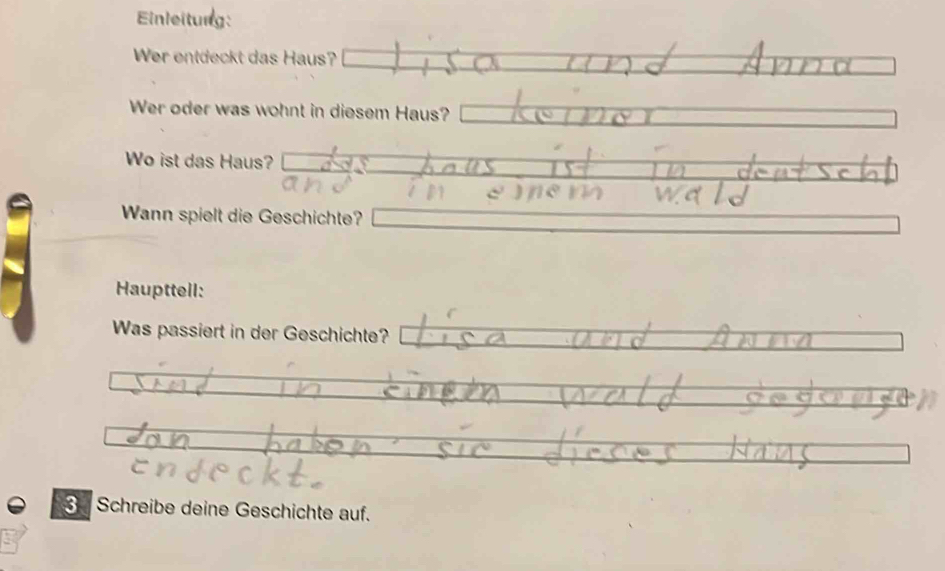 Einleitung:
Wer entdeckt das Haus? Lisa und Anna
Wer oder was wohnt in diesem Haus? keiner
Wo ist das Haus? das haus ist in deutschl
and in einem wald
Wann spielt die Geschichte?
Hauptteil:
Was passiert in der Geschichte? Lisa und Anna
sind in einem wald gegangen
dan haben sie dieses Haus
endeckt.
3 Schreibe deine Geschichte auf.